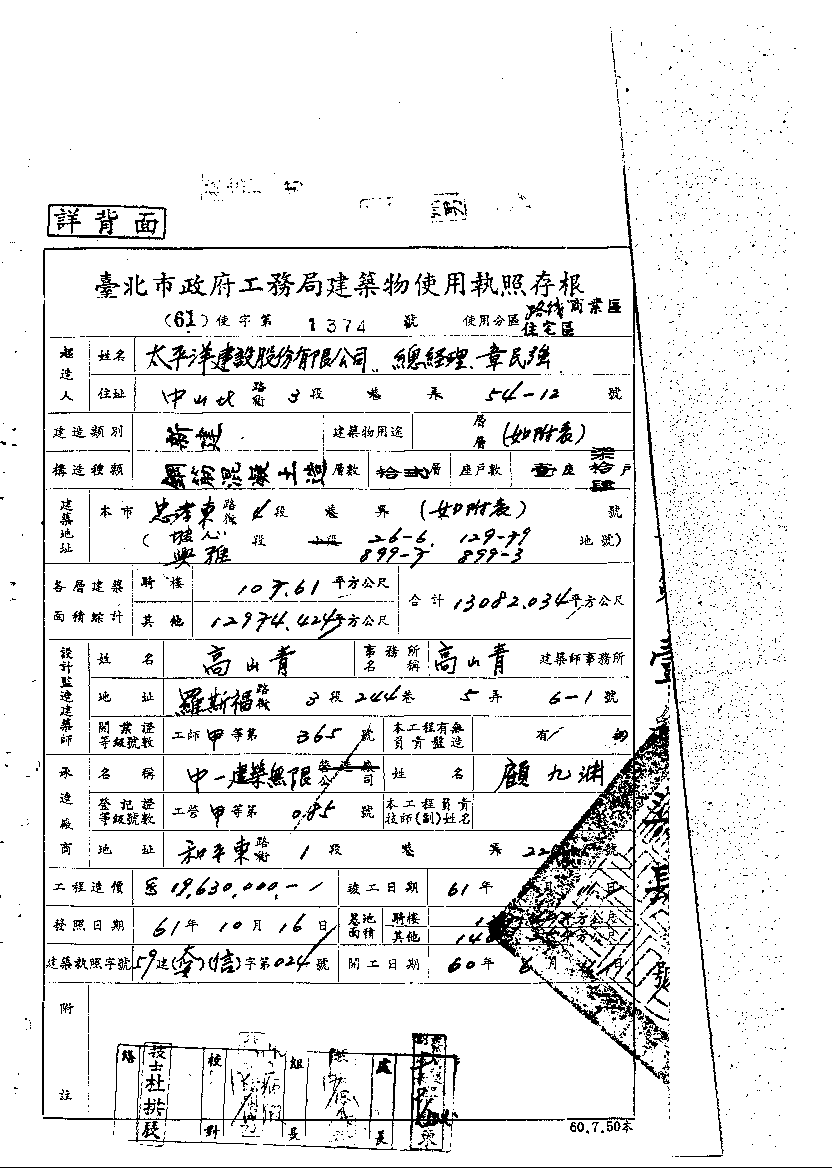 詳背面
臺北市政府工務局建築物使用執照存根
(61)使字第 1374 號 使用分區 路線商業區 住宅區
起造人 姓名 太平洋建設股份有限公司 總經理 章民強
住址 中山北路街 3段 巷 弄 54-12 號
建造類別 新建 建築物用途 層層 (如附表)
構造種類 鋼筋混凝土造 層數 拾貳層 座戶數 壹座 柒拾肆戶
建築地址 本市 忠孝東路 4段 巷 弄 (如附表) 號
(坡心 段 小段 26-6. 129-79 地號)
興雅 899-7 899-3
各層建築面積綜計 騎樓 107.61 平方公尺 合計 13082.034 平方公尺
其他 12974.424 平方公尺
設計監造建築師 姓名 高山青 事務所名稱 高山青 建築師事務所
地址 羅斯福路 3段 244巷 5弄 6-1號
開業證等級號數 工師甲等第 365 號 本工程有無負責監造 有
承造廠商 名稱 中一建築無限公司 姓名 顧九淵
登記證等級號數 工營甲等第 085 號 本工程負責技師(副)姓名
地址 和平東路街 1段 巷 弄 號
工程造價 19,630,000.- 竣工日期 61年 月 日
發照日期 61年10月16日 基地面積 騎樓 平方公尺
其他 平方公尺
建築執照字號 59建()(信)字第024號 開工日期 60年 月 日
附註
校對 組長 處長
60.7.50本